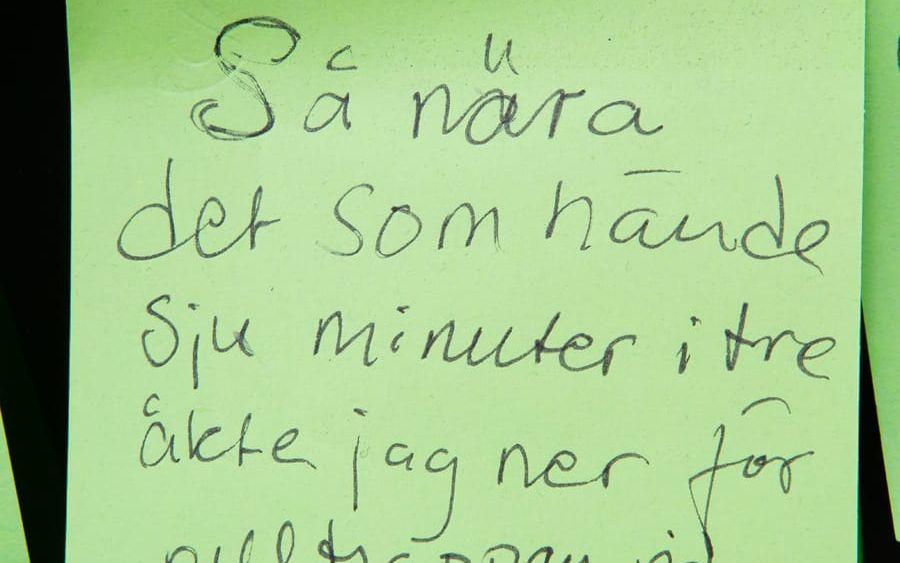 Så nära
det som hände
sju minuter i tre
åkte jag ner för
rulltrappan vid